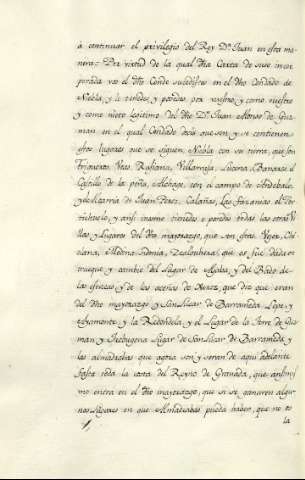 à continuar el privilegio del Rey Dn. Juan en esta ma
nera: Por virtud de la qual dha Carta de suso incor
porada vos el dho Conde subcedistes en el dho Condado de
Niebla, y le tenedes, y poseedes por vuestro, y como vuestro
y como nieto legitimo del dho Dn. Juan Alfonso de Guz
man en el qual Condado dice que son y se contienen
estos lugares que se siguen, Niebla con su tierra, que son
Trigueros, Veas, Rosiana, Villarrasa, Lucena, Bonares el
Castillo de la peña, Almonte, con el campo de
de Juan Perez, Calañas, Las
y ansi mesmo tenedes è poseedes todas las otras Vi
llas y Lugares del dho mayorazgo, que son estas, Vejer, Chi
clana, Medina Sidonia, que os fue dada en
trueque y cambio del Lugar de y del Vado de
las estacas y de los de que diz que eran
del dho mayorazgo y San Lucar de Barrameda, Lepe y
Ayamonte y la Redondela y el Lugar de la Torre de Guz
man y Trebugena Lugar de San Lucar de Barrameda y
las almadrabas que agora son y seran de aqui adelante
fasta toda la costa del Reyno de Granada, que ansimis
mo entra en el dho mayorazgo, que si se ganaren algu
nos Lugares en que Almadrabas pueda haber, que no os
la